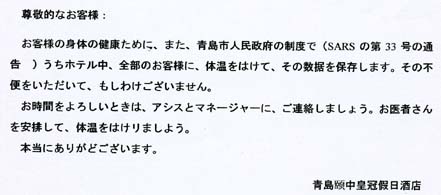 尊敬的なお客様：
お客様の身体の健康ために、また、青島市人民政府の制度で（SARS の第 33 号の通
告　）うちホテル中、全部のお客様に、体温をはけて、その数据を保存します。その不
便をいただいて、もしわけございません。
お時間をよろしいときは、アシスとマネージャーに、ご連絡しましょう。お医者さん
を安排して、体温をはけリましよう。
本当にありがどございます。
青島頤中皇冠假日酒店